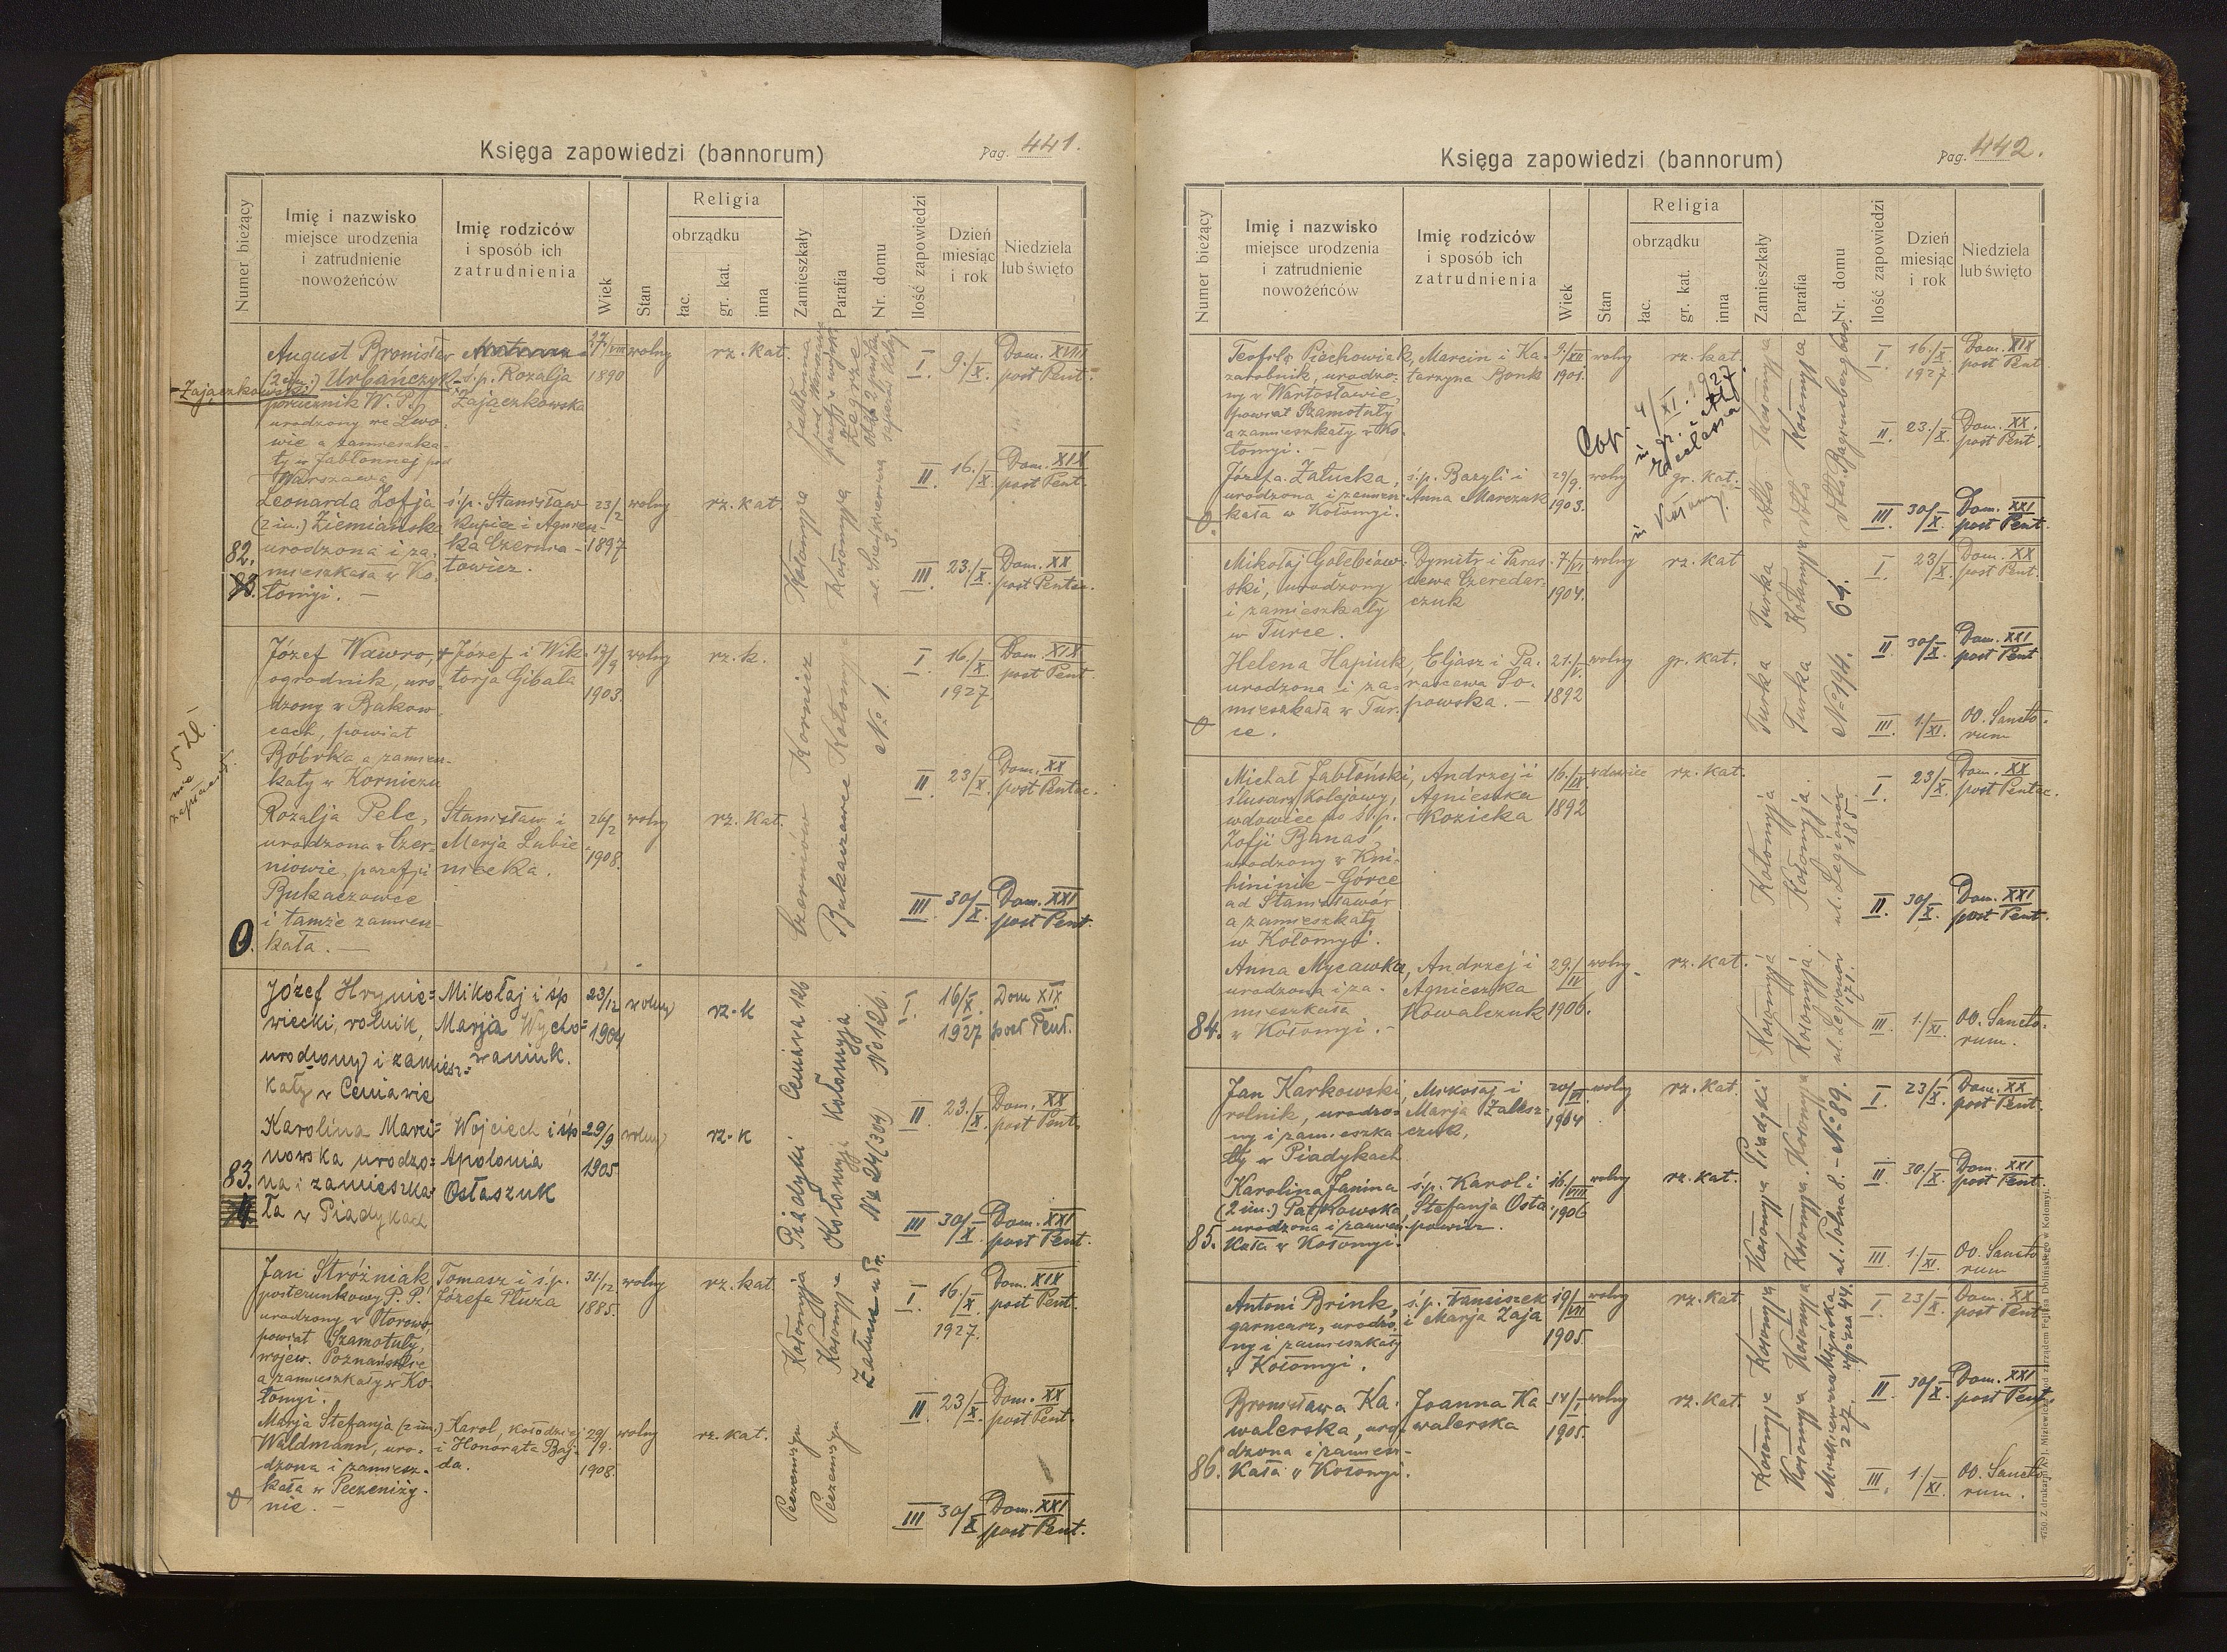 Księga zapowiedzi (bannorum)
Pag. 441.
Numer bieżący
Imię i nazwisko
miejsce urodzenia
i zatrudnienie
nowożeńców
Imię rodziców
i sposób ich
zatrudnienia
Wiek
Stan
Religia
obrządku
łac.
gr. kat.
inna
Zamieszkały
Parafia
Nr. domu
Ilość zapowiedzi
Dzień
miesiąc
i rok
Niedziela
lub święto
August Bronisław
(2 im.) Urbańczyk-
-Zajączkowski
porucznik W. P.
urodzony we Lwo-
wie a zamieszka-
ły w Jabłonnej pod
Warszawą
ś.p. Rozalja
Zajączkowska
27/VIII
1890
wolny
rz. kat.
I. 9./X Dom. XVIII
post Pent.
II. 16./X Dom. XIX
post Pent.
III. 23./X Dom. XX
post Pentec.
82.
Leonarda Zofja
(2 im.) Ziemiańska
urodzona i za-
mieszkała w Ko-
łomyi. —
ś.p. Stanisław
kupiec i Agniesz-
ka Czerwia-
towicz.
23/2
1897
wolny
rz. kat.
Kołomyja
Kołomyja
3.
Józef Wawro,
ogrodnik, uro-
dzony w Bakow-
cach, powiat
Bóbrka a zamiesz-
kały w Korniczu
Józef i Wik-
torja Gibała
17/9
1903.
wolny
rz. k.
Kornicz
Kołomyja
No 1.
I. 16./X 1927 Dom. XIX
post Pent.
II. 23/X Dom. XX
post Pentec.
III. 30/X Dom. XXI
post Pent.
5 Zł.
nie
Rozalja Pelc,
urodzona w Czer-
niowie, parafji
Bukaczowce
i tamże zamiesz-
kała. —
Stanisław i
Marja Lubie-
niecka.
26/2
1908.
wolny
rz. kat.
Czerniów
Bukaczowce
0.
Józef Hrynie=
wiecki, rolnik,
urodzony i zamiesz=
kały w Ceniawie
Mikołaj i śp
Marja Wycho=
waniuk.
23/12
1904
wolny
rz-k
Ceniawa 126
Kołomyja
No 126.
I. 16/X. 1927 Dom XIX
post Pent.
II 23./X Dom. XX
post Pent.
III 30/X Dom. XXI
post Pent.
83.
Karolina Marci=
nowska urodzo=
na i zamieszka=
ła w Piadykach
Wojciech i śp
Apolonia
Ostaszuk
29/9
1905
wolny
rz-k
Piadyki
Kołomyji
No 24/309
Jan Stróżniak
posterunkowy P. P.
urodzony w Otorowo
powiat Szamotuły,
wojew. Poznańskie
a zamieszkały w Ko-
łomyi. —
Tomasz i ś.p.
Józefa Pluza
31./12.
1885.
wolny
rz. kat.
Kołomyja
Kołomyja
I. 16./X 1927. Dom. XIX
post Pent.
II 23/X. Dom. XX
post Pent.
III 30/X Dom. XXI
post Pent.
Marja Stefanja (2 im.)
Waldmann, uro-
dzona i zamiesz-
kała w Peczeniży-
nie. —
Karol, kołodziej
i Honorata Baj-
da.
29/9.
1908.
wolny
rz. kat.
Peczeniżyn
Peczeniżyn
Księga zapowiedzi (bannorum)
Pag. 442.
Numer bieżący
Imię i nazwisko
miejsce urodzenia
i zatrudnienie
nowożeńców
Imię rodziców
i sposób ich
zatrudnienia
Wiek
Stan
Religia
obrządku
łac.
gr. kat.
inna
Zamieszkały
Parafia
Nr. domu
Ilość zapowiedzi
Dzień
miesiąc
i rok
Niedziela
lub święto
Teofil Piechowiak,
zarobnik, urodzo-
ny w Wartosławie,
powiat Szamotuły
a zamieszkały w Ko-
łomyi. —
Marcin i Ka-
tarzyna Bonk
9./XII
1901.
wolny
rz. kat.
Kołomyja
Kołomyja
I 16./X 1927 Dom. XIX
post Pent
II 23./X. Dom. XX.
post Pent.
III 30/X. Dom. XXI
post Pent.
Cop. 4/XI. 1927.
Józefa Załucka,
urodzona i zamiesz-
kała w Kołomyi.
ś.p. Bazyli i
Anna Marczuk
29/9.
1903.
wolny
gr. kat.
Mikołaj Gołębiow-
ski, urodzony
i zamieszkały
w Turce.
Dymitr i Paras-
cewa Czeredar-
czuk
7/VI.
1904.
wolny
rz. kat
Turka
Kołomyja
64.
I. 23/X. Dom. XX
post Pent.
II 30/X. Dom. XXI
post Pent
III. 1./XI. OO. Sancto-
rum
Helena Hapiuk,
urodzona i za-
mieszkała w Tur-
ce.
Eljasz i Pa-
rascewa So-
powska. —
21./V.
1892
wolny
gr. kat.
Turka
Turka
No 194.
Michał Jabłoński,
ślusarz kolejowy,
wdowiec po ś.p.
Zofji Banaś,
urodzony w Kni-
hininie-Górce
ad Stanisławów
a zamieszkały
w Kołomyi.
Andrzej i
Agnieszka
Kozicka
16./IX.
1892
wdowiec
rz. kat.
Kołomyja
Kołomyja.
ul. Legionów
185.
I. 23/X Dom. XX
post Pentec.
II. 30/X. Dom. XXI
post Pent.
III. 1./XI. OO. Sancto-
rum.
84.
Anna Mycawka,
urodzona i za-
mieszkała
w Kołomyi. —
Andrzej i
Agnieszka
Kowalczuk
29./IV
1906.
wolny
rz. kat.
Kołomyja
Kołomyja
ul. Legionów
171.
Jan Karkowski,
rolnik, urodzo-
ny i zamieszka-
ły w Piadykach
Mikołaj i
Marja Zalesz-
czuk,
20/VI.
1904
wolny
rz. kat.
Piadyki
Kołomyja
No 89.
I. 23/X Dom. XX
post Pent.
II 30./X. Dom. XXI
post Pent.
III. 1./XI. OO. Sancto
rum
85.
Karolina Janina
(2 im.) Patkowska,
urodzona i zamiesz-
kała w Kołomyi.
ś.p. Karol i
Stefanja Osta-
powicz.
16./VIII
1906
wolny
rz. kat.
Kołomyja
Kołomyja
ul. Polna 8.
Antoni Brink,
garncarz, urodzo-
ny i zamieszkały
w Kołomyi.
ś.p. Franciszek
i Marja Zając
19/VIII
1905.
wolny
rz. kat.
Kołomyja
Kołomyja
44.
I. 23/X Dom. XX
post Pent
II 30/X. Dom. XXI
post Pent
III. 1/XI. OO. Sancto
rum.
86.
Bronisława Ka-
walerska, uro-
dzona i zamiesz-
kała w Kołomyi.
Joanna Ka
walerska
14/I
1905.
wolny
rz. kat.
Kołomyja
Kołomyja
227.